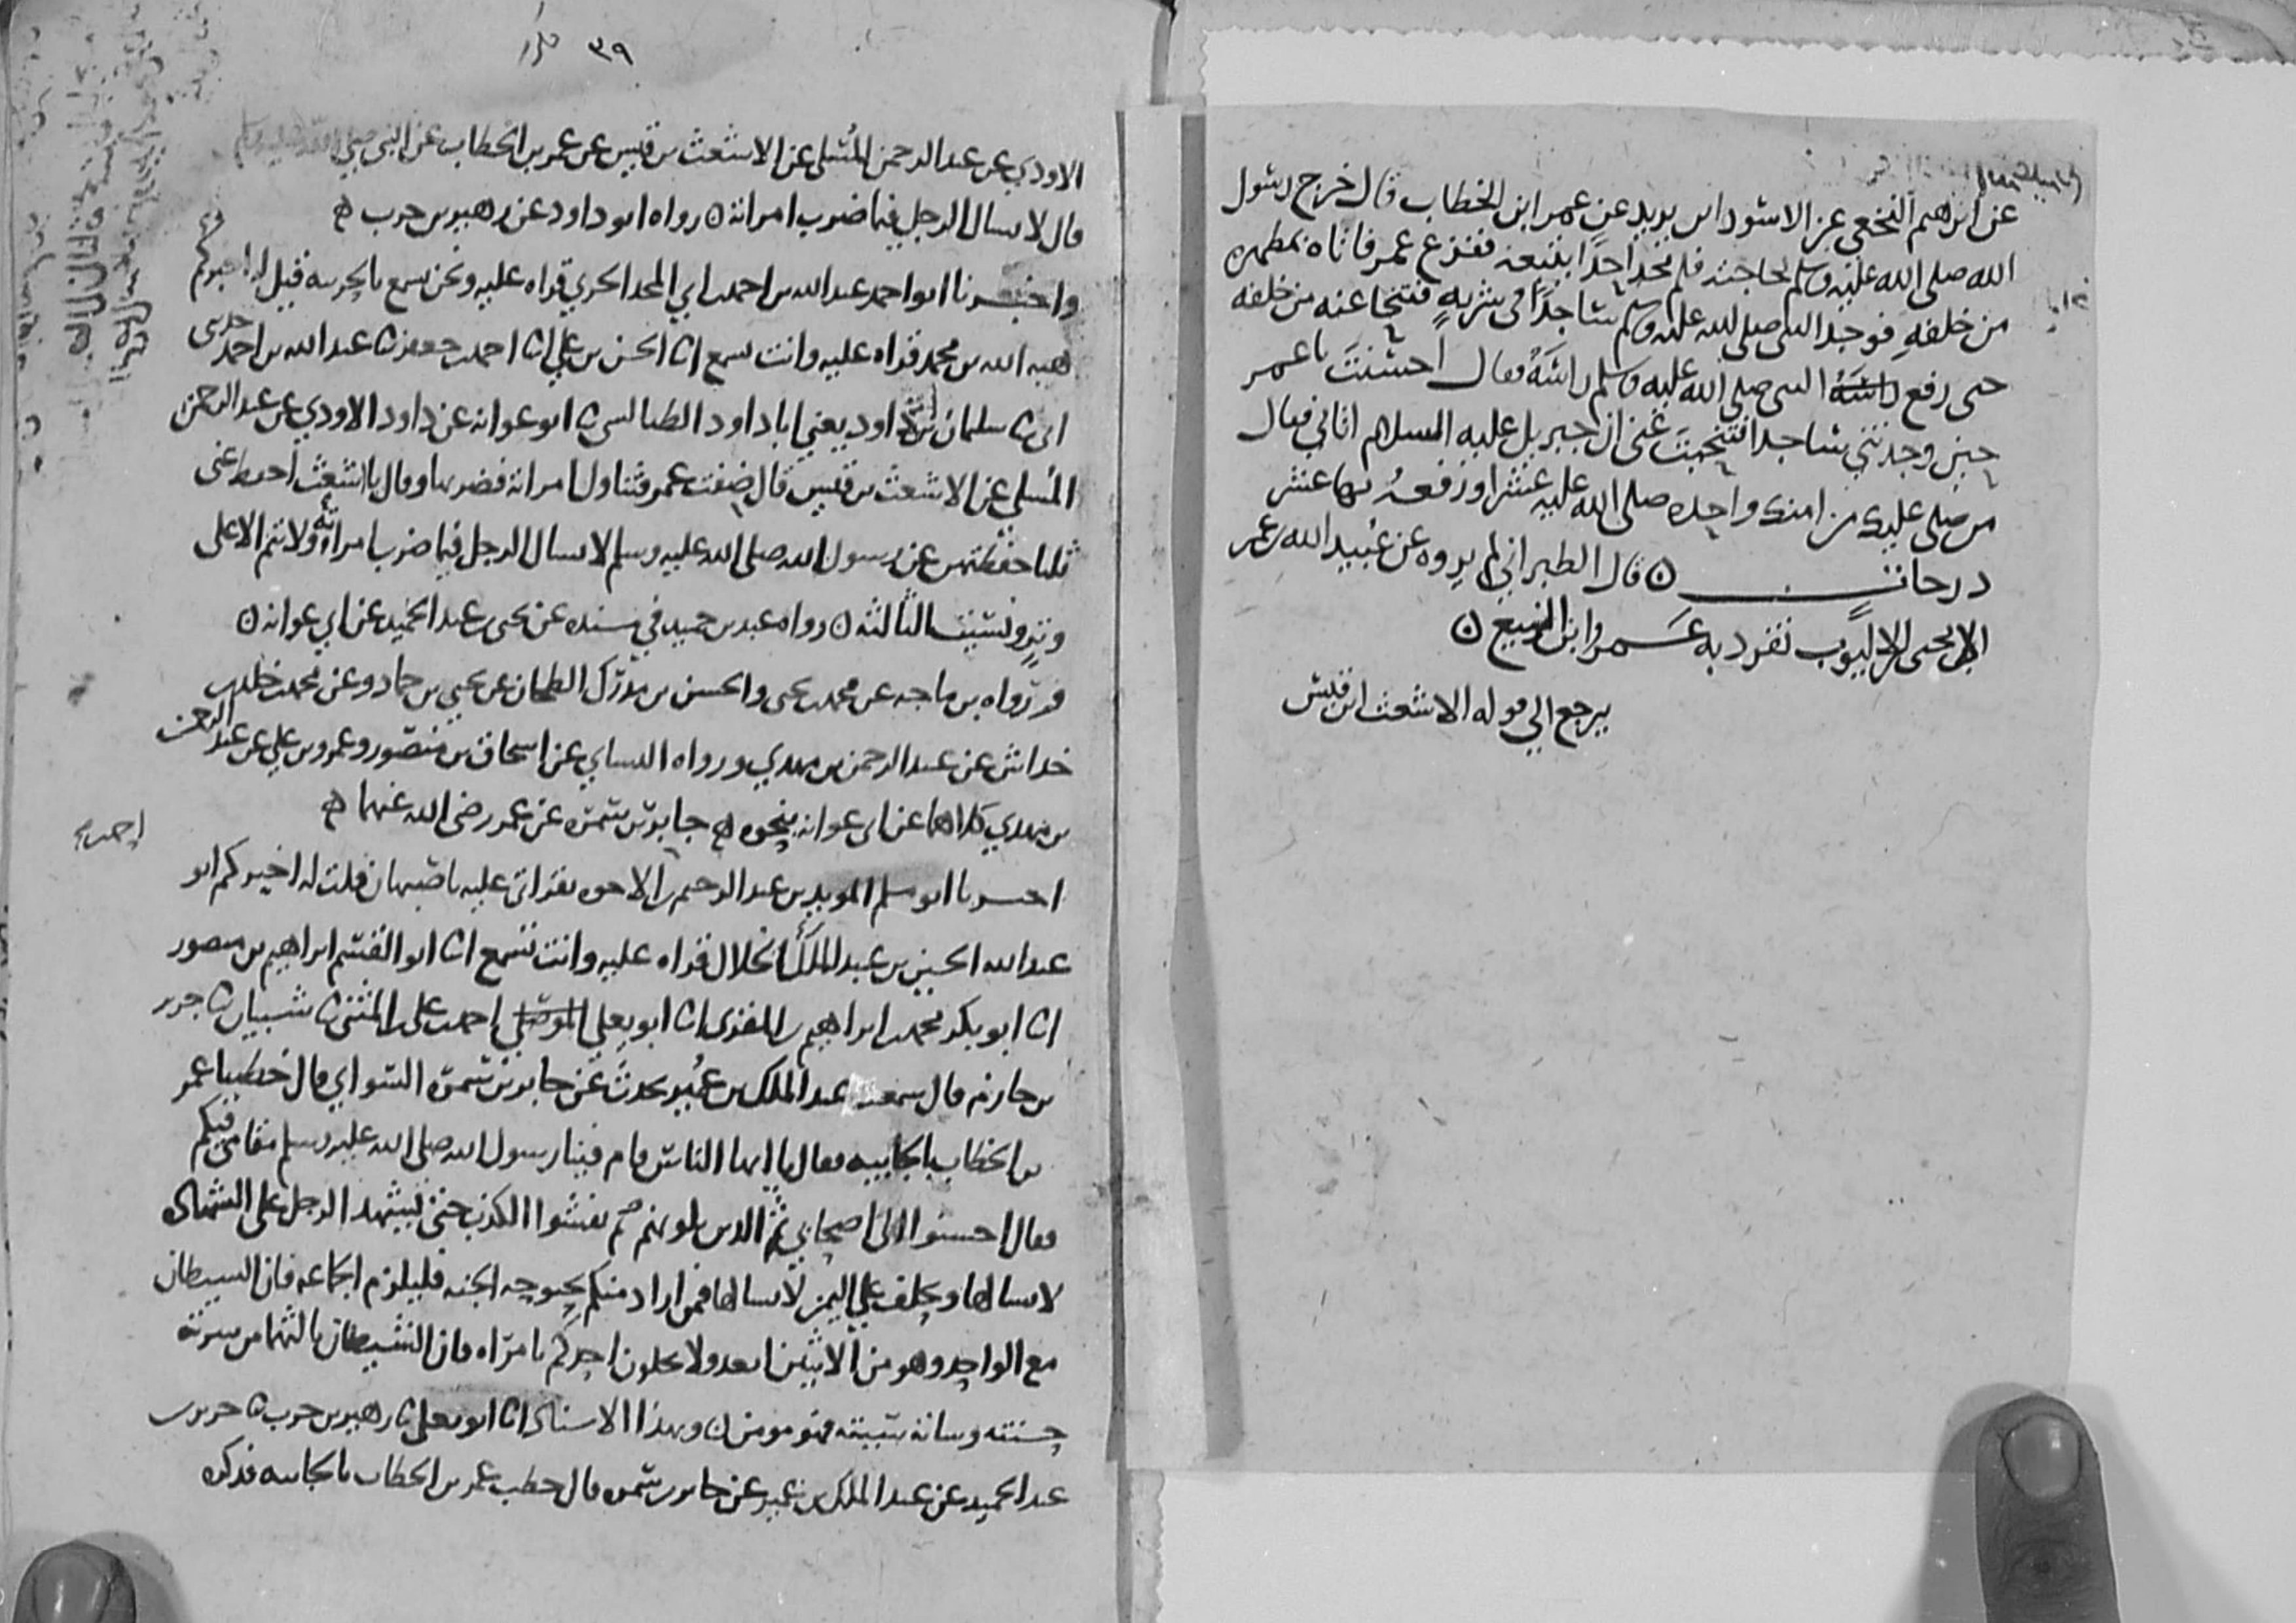 عن ابرهيم النخعي عن الاسود ابن يزيد عن عمر ابن الخطاب قال خرج رسول
الله صلى الله عليه وسلم لحاجته فلم يجد احدا يتبعه ففزع عمر فاتاه بمطهرة
من خلفه فوجد النبى صلى الله عليه وسلم ساجدا في شربه فتنحا عنه من خلفه
حتى رفع راسه النبى صلى الله عليه وسلم راسه فقال احسنت يا عمر
حين وجدتني ساجدا فتنحيت عني ان جبريل عليه السلام اتاني فقال
من صلى عليك من امتك واحده صلى الله عليه عشرا ورفعه بها عشر
درجات ٥ قال الطبراني لم يروه عن عبيد الله بن عمر
الا يحيى بن ايوب تفرد به عمرو ابن الربيع ٥
يرجع الي قوله الاشعث ابن قيس
٣٩ مكرر
الاودي عن عبد الرحمن المسلى عن الاشعث بن قيس عن عمر بن الخطاب عن النبي صلى الله عليه وسلم
قال لا يسال الرجل فيما ضرب امراته ٥ رواه ابو داود عن زهير بن حرب ه
واخبرنا ابو احمد عبد الله بن احمد بن ابي المجد الحربي قراه عليه ونحن نسمع بالحربيه قيل له اخبركم
هبه الله بن محمد قراه عليه وانت تسمع انا الحسن بن علي انا احمد بن جعفر نا عبد الله بن احمد حدثنى
ابى نا سليمان بن داود يعني ابا داود الطيالسى نا ابو عوانه عن داود الاودي عن عبد الرحمن
المسلي عن الاشعث بن قيس قال ضفت عمر فتناول امراته فضربها وقال يا اشعث احفظ عني
ثلثا حفظتهن عن رسول الله صلى الله عليه وسلم لا يسال الرجل فيما ضرب امراته ولا تنم الا على
وتر ونسيت الثالثه ٥ رواه عبد بن حميد في مسنده عن يحيى بن عبد الحميد عن ابي عوانه ٥
ورواه بن ماجه عن محمد بن يحيى والحسن بن مدرك الطحان عن يحيي بن حماد وعن محمد بن خالد بن
خداش عن عبد الرحمن بن مهدي ورواه النساي عن اسحاق بن منصور وعمرو بن علي عن عبد الرحمن
بن مهدي كلاهما عن ابى عوانه بنحوه ه جابر بن سمرة عن عمر رضي الله عنهما ه
اخبرنا ابو مسلم المويد بن عبد الرحيم بن الاخوه بقراتى عليه باصبهان قلت له اخبركم ابو
عبد الله الحسين بن عبد الملك الخلال قراه عليه وانت تسمع انا ابو القسم ابراهيم بن منصور
انا ابو بكر محمد بن ابراهيم بن المقرى انا ابو يعلي الموصلي احمد بن على بن المثنى نا شيبان نا جرير
بن حازم قال سمعت عبد الملك بن عمير يحدث عن جابر بن سمرة السواي قال خطبنا عمر
بن الخطاب بالجابيه فقال يا ايها الناس قام فينا رسول الله صلى الله عليه وسلم مقامي فيكم
فقال احسنوا الى اصحابي ثم الذين يلونهم ثم يفشوا الكذب حتى يشهد الرجل على الشهاده
لا يسالها ويحلف علي اليمين لا يسالها فمن اراد منكم بحبوحه الجنه فليلزم الجماعه فان الشيطان
مع الواحد وهو من الاثنين ابعد ولا يخلون احدكم بامراه فان الشيطان ثالثهما من سرته
حسنته وساته سييته فهو مومن ٥ وبهذا الاسناد انا ابو يعلى نا زهير بن حرب نا جرير بن
عبد الحميد عن عبد الملك بن عمير عن جابر بن سمرة قال خطب عمر بن الخطاب بالجابيه فذكره